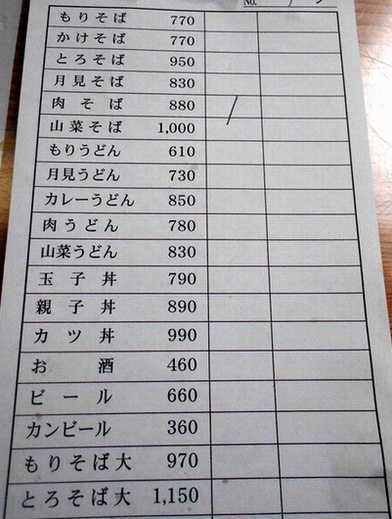 No.
もりそば 770
かけそば 770
とろそば 950
月見そば 830
肉そば 880
山菜そば 1,000
もりうどん 610
月見うどん 730
カレーうどん 850
肉うどん 780
山菜うどん 830
玉子丼 790
親子丼 890
カツ丼 990
お酒 460
ビール 660
カンビール 360
もりそば大 970
とろそば大 1,150